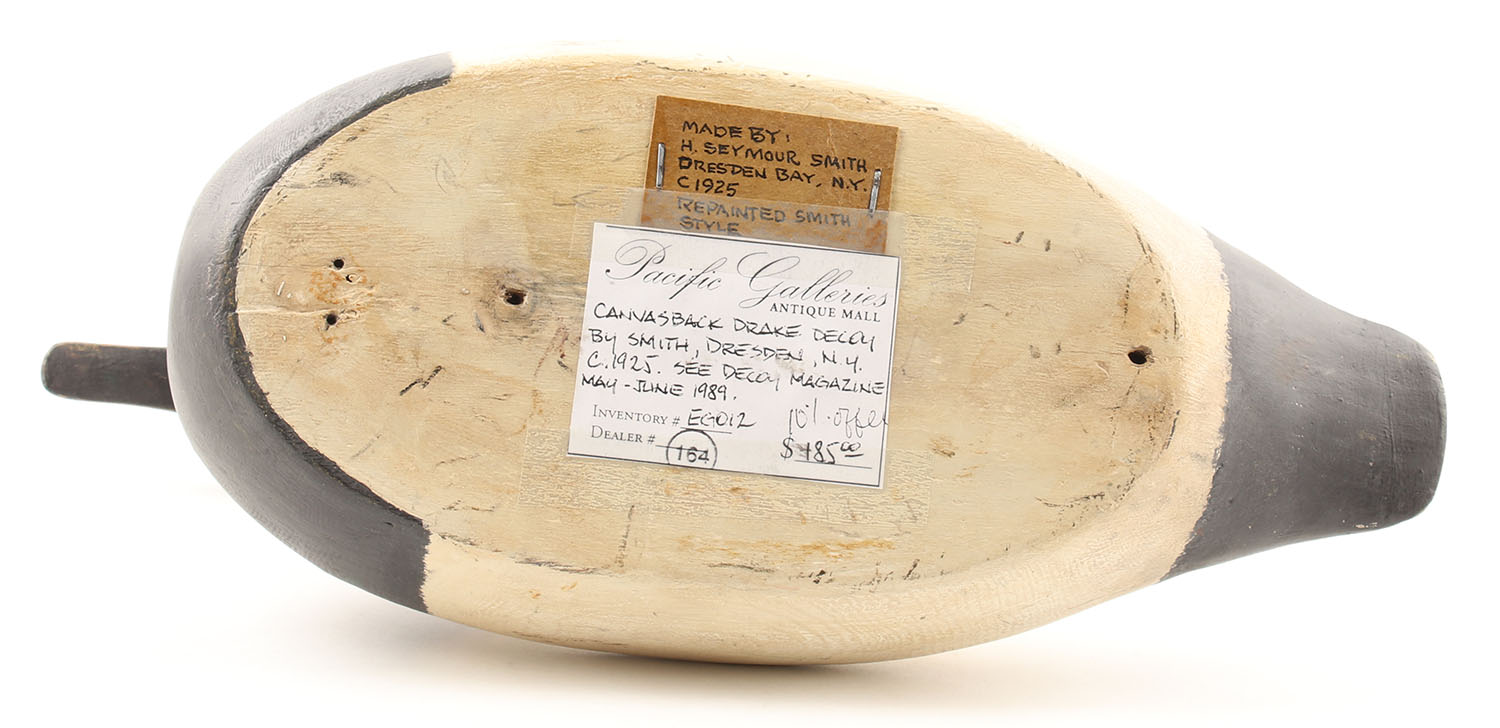 MADE BY:
H. SEYMOUR SMITH
DRESDEN BAY, N.Y.
C1925
REPAINTED SMITH
STYLE
Pacific Galleries
ANTIQUE MALL
CANVASBACK DRAKE DECOY
BY SMITH, DRESDEN, N.Y.
C.1925. SEE DECOY MAGAZINE
MAY-JUNE 1989.
INVENTORY # EG012
DEALER # 164
$485.00